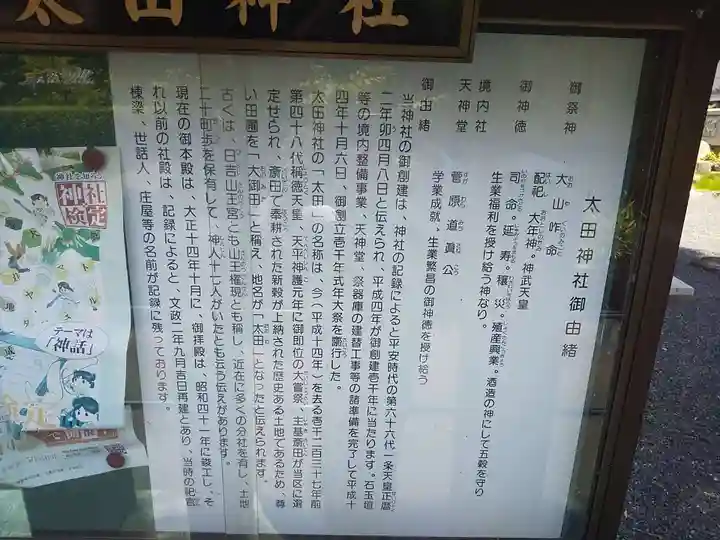 太田神社
太田神社御由緒
御祭神　大山咋命
配祀。大年神。神武天皇
御神徳　司命。延寿。穰災。殖産興業。酒造の神にして五穀を守り
生業福利を授け給う神なり。
境内社
天神堂　菅原道眞公
学業成就、生業繁昌の御神徳を授け給う
御由緒
当神社の御創建は、神社の記録によると平安時代の第六十六代一条天皇正暦
二年卯四月八日と伝えられ、平成四年が御創建壱千年に当たります。石玉垣
等の境内整備事業、天神堂、祭器庫の建替工事等の諸準備を完了して平成十
四年十月六日、御創立壱千年式年大祭を斎行した。
太田神社の「太田」の名称は、今(平成十四年)を去る壱千二百三十七年前
第四十八代稱徳天皇、天平神護元年に御即位の大嘗祭、主基斎田が当区に選
定せられ、斎田で奉耕された新穀が上納された歴史ある土地であるため、尊
い田圃を「大御田」と称え、地名が「太田」となったと伝えられます。
古くは、日吉山王宮とも山王権現とも稱し、近在に多くの分社を有し、土地
二十町歩を保有して、神人十七人がいたとも云ち伝えがあります。
現在の御本殿は、大正十四年十月に、御拝殿は、昭和四十一年に竣工し、そ
れ以前の社殿は、記録によると、文政二年九月吉日再建とあり、当時の祀官
棟梁、世話人、庄屋等の名前が記録に残っております。
神社検定
テーマは
「神話」